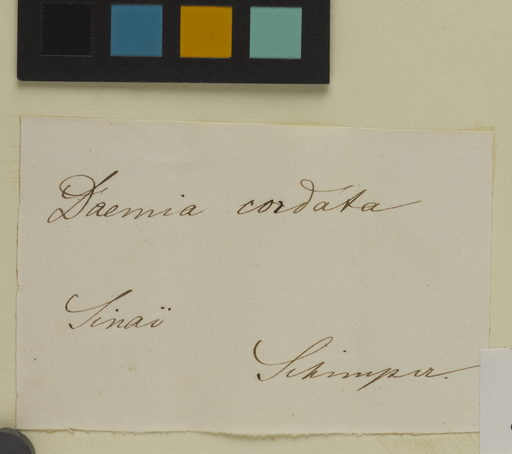 Daemia cordata
Sinaï
Schimper.